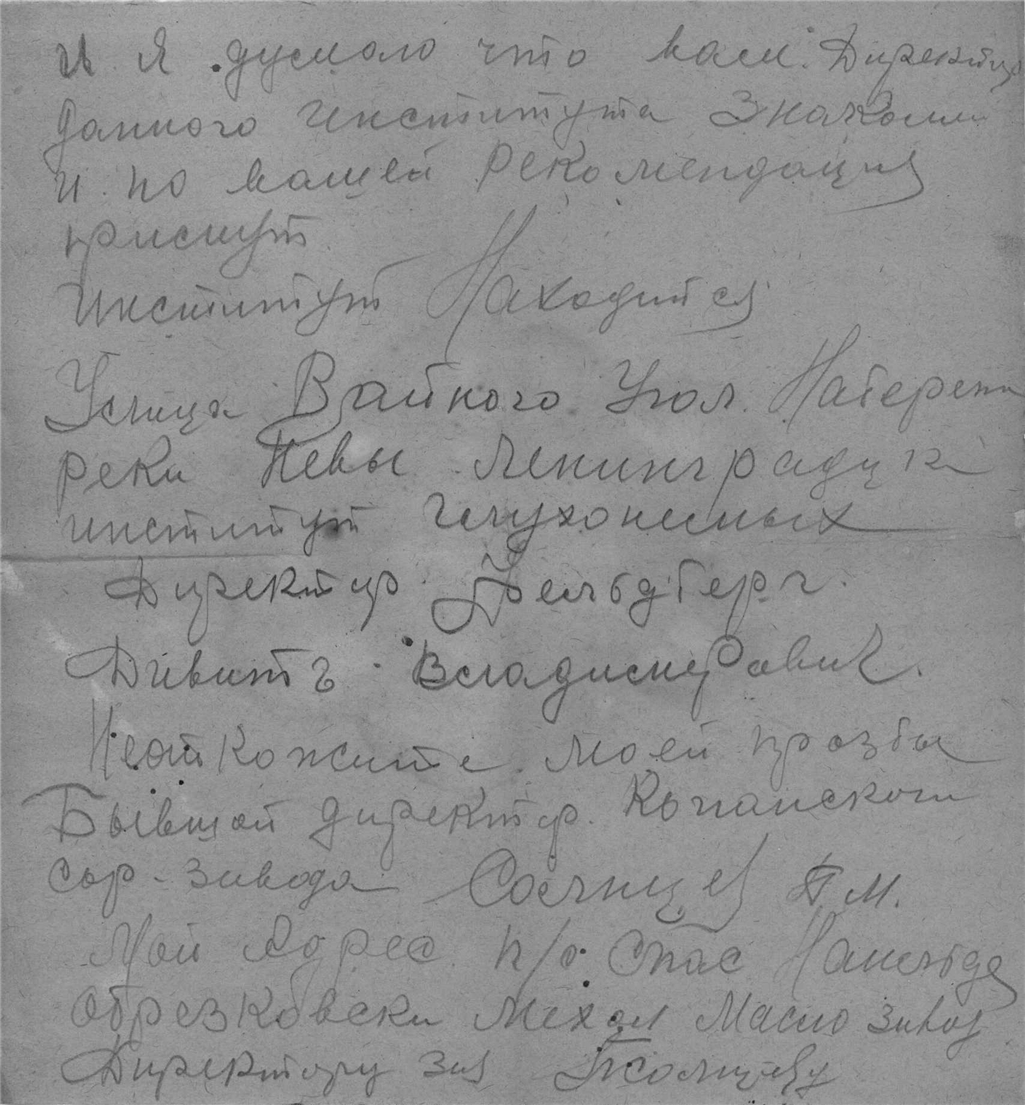 И я думаю что вам Директор
данного института Знаком
и по вашей рекомендация
примут
институт Находится
Улица Угол Набережн
реки Невы Ленинград
институт глухонемых
Директор Фельдберг
Дивитъ Владимерович.
Неоткожите моей прозбы
Бывшой директор
сыр-завода П М.
Мой Адрес п/о Спас
Обрезковски Мехон Масло завод
Директору